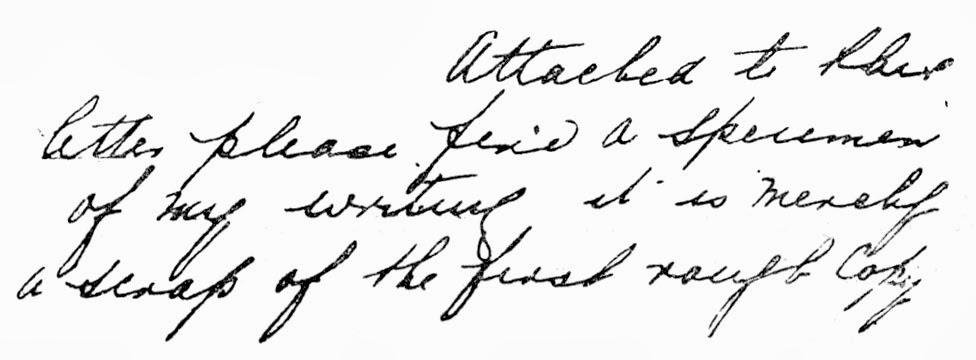 Attached to this
letter please find a specimen
of my writing it is merely
a scrap of the first rough Copy